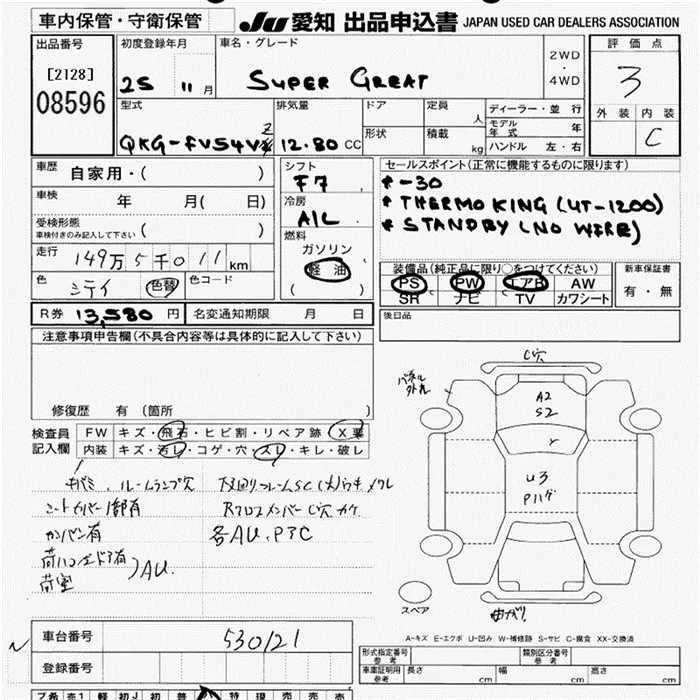 車内保管・守衛保管 JU 愛知 出品申込書 JAPAN USED CAR DEALERS ASSOCIATION
出品番号 初度登録年月 車名・グレード 評価点
[2128] 25 11 月 SUPER GREAT 2WD・4WD 3
08596 型式 排気量 ドア 定員 人 ディーラー・並行 外装 内装
QKG-FV54VZ 12.80 CC 形状 積載 kg モデル年式 年 C
ハンドル 左・右
車歴 自家用・( ) シフト F7 セールスポイント(正常に機能するものに限ります)
車検 年 月( 日) 冷房 A/C * -30
受検形態 ( ) * THERMO KING (UT-1200)
車検付きのみ記入して下さい 燃料 * STANDBY (NO WIRE)
走行 149万5千011km ガソリン
色 シテイ 色替 色コード 軽油 装備品(純正品に限り○をつけてください) 新車保証書
( ) PS PW エアB AW 有・無
SR ナビ TV カワシート
R券 13,580 円 名変通知期限 月 日 後日品
注意事項申告欄(不具合内容等は具体的に記入して下さい)
C穴
パネル
A2
S2
修復歴 有(箇所 )
検査員 FW キズ・飛石・ヒビ割・リペア跡 X要
記入欄 内装 キズ・汚レ・コゲ・穴・スレ・キレ・破レ
Y
キバミ、ルームランプ穴 下廻りフレームSC(大)ウキ メクレ
U3
シートカバー1部有 RクロスメンバーC穴カケ
Pハゲ
カンバン有 各AU、PTC
荷ハコエドア有
荷室 )AU.
スペア 曲がり
車台番号 530121
A-キズ E-エクボ U-凹み W-補修跡 S-サビ C-腐食 XX-交換済
登録番号
形式指定番号 参考 類別区分番号 参考
車庫証明用 参考 長さ cm 幅 cm 高さ cm